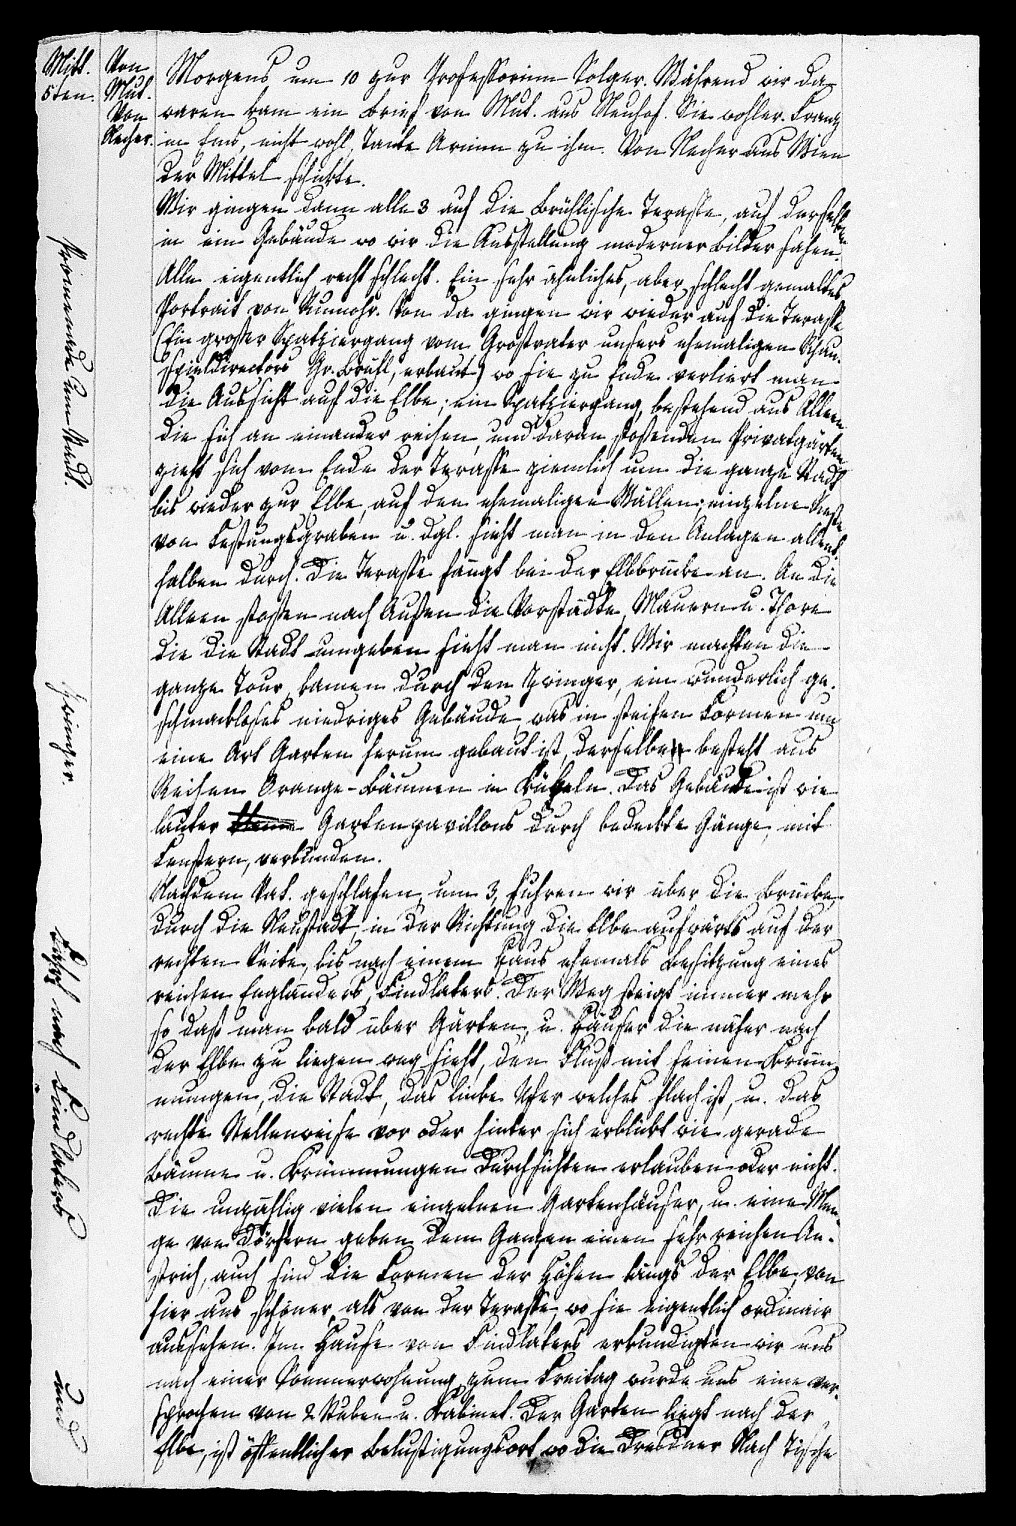 Mitt.
5ten.
Von
Mut.
Von
Necher.
Morgens um 10 zur Professorinn Solger. Während wir da
waren kam ein Brief von Mut. aus Neuhof. Sie wohler. Franz
in Ems, nicht wohl, Tante Arnim zu ihm. Von Necher aus Wien
der Mittel schickte.
Wir gingen dann alle 3 auf die Brühlische Terasse, auf derselben
in ein Gebäude wo wir die Ausstellung moderner Bilder sahen.
Alle eigentlich recht schlecht. Ein sehr ähnliches, aber schlecht gemaltes
Portrait von Rumohr. Von da gingen wir wieder auf die Terasse
(Ein großer Spatziergang vom Grosvater unsers ehemaligen Schau-
spieldirectors Gr. Brühl, erbaut) wo sie zu Ende verliert man
die Aussicht auf die Elbe; ein Spatziergang, bestehend aus Alleen
die sich an einander reihen, und daran stoßenden Privatgärten
zieht sich vom Ende der Terasse ziemlich um die ganze Stadt
bis wieder zur Elbe, auf den ehemaligen Wällen; einzelne Reste
von Festungsgraben u. dgl. sieht man in den Anlagen allent-
halben durch. Die Terasse fängt bei der Elbbrücke an. An die
Alleen stoßen nach Außen die Vorstädte, Mauern u. Thore
die die Stadt umgeben sieht man nicht. Wir machten die
ganze Tour, kamen durch den Zwinger, ein wunderlich ge-
schmackloses niedriges Gebäude, was in steifen Formen um
eine Art Garten herum gebaut ist, derselbe besteht aus
Reihen Orange-Bäumen in Kübeln. Das Gebäude ist wie
lauter Gartenpavillons durch bedeckte Gänge, mit
Fenstern, verbunden.
Nachdem Vat. geschlafen, um 3, fuhren wir über die Brücke,
durch die Neustadt, in der Richtung die Elbe aufwärts auf der
rechten Seite, bis nach einem Haus ehemals Besitzung eines
reichen Engländers, Findlaters. Der Weg steigt immer mehr
so daß man bald über Gärten, u. Häuser die näher nach
der Elbe zu liegen weg sieht, den Fluß mit seinen Krüm-
mungen, die Stadt, das linke Ufer welches flach ist, u. das
rechte Stellenweise vor oder hinter sich erblickt wie gerade
Bäume u. Krümmungen Durchsichten erlauben oder nicht.
Die unzählig vielen einzelnen Gartenhäuser, u. eine Men-
ge von Dörfern geben dem Ganzen einen sehr reichen An-
strich, auch sind die Formen der Höhen längs der Elbe, von
hier aus schöner, als von der Terasse, wo sie eigentlich ordinair
aussehen. Im Hause von Findlaters erkundigten wir uns
nach einer Sommerwohnung, zum Freitag wurde uns eine ver-
sprochen von 2 Stuben u. Kabinet. Der Garten liegt nach der
Elbe, ist öffentlicher Belustigungsort, wo die Dresdner Nach Tische
Promenade um Stadt.
Zwinger.
nach Findlaters
und